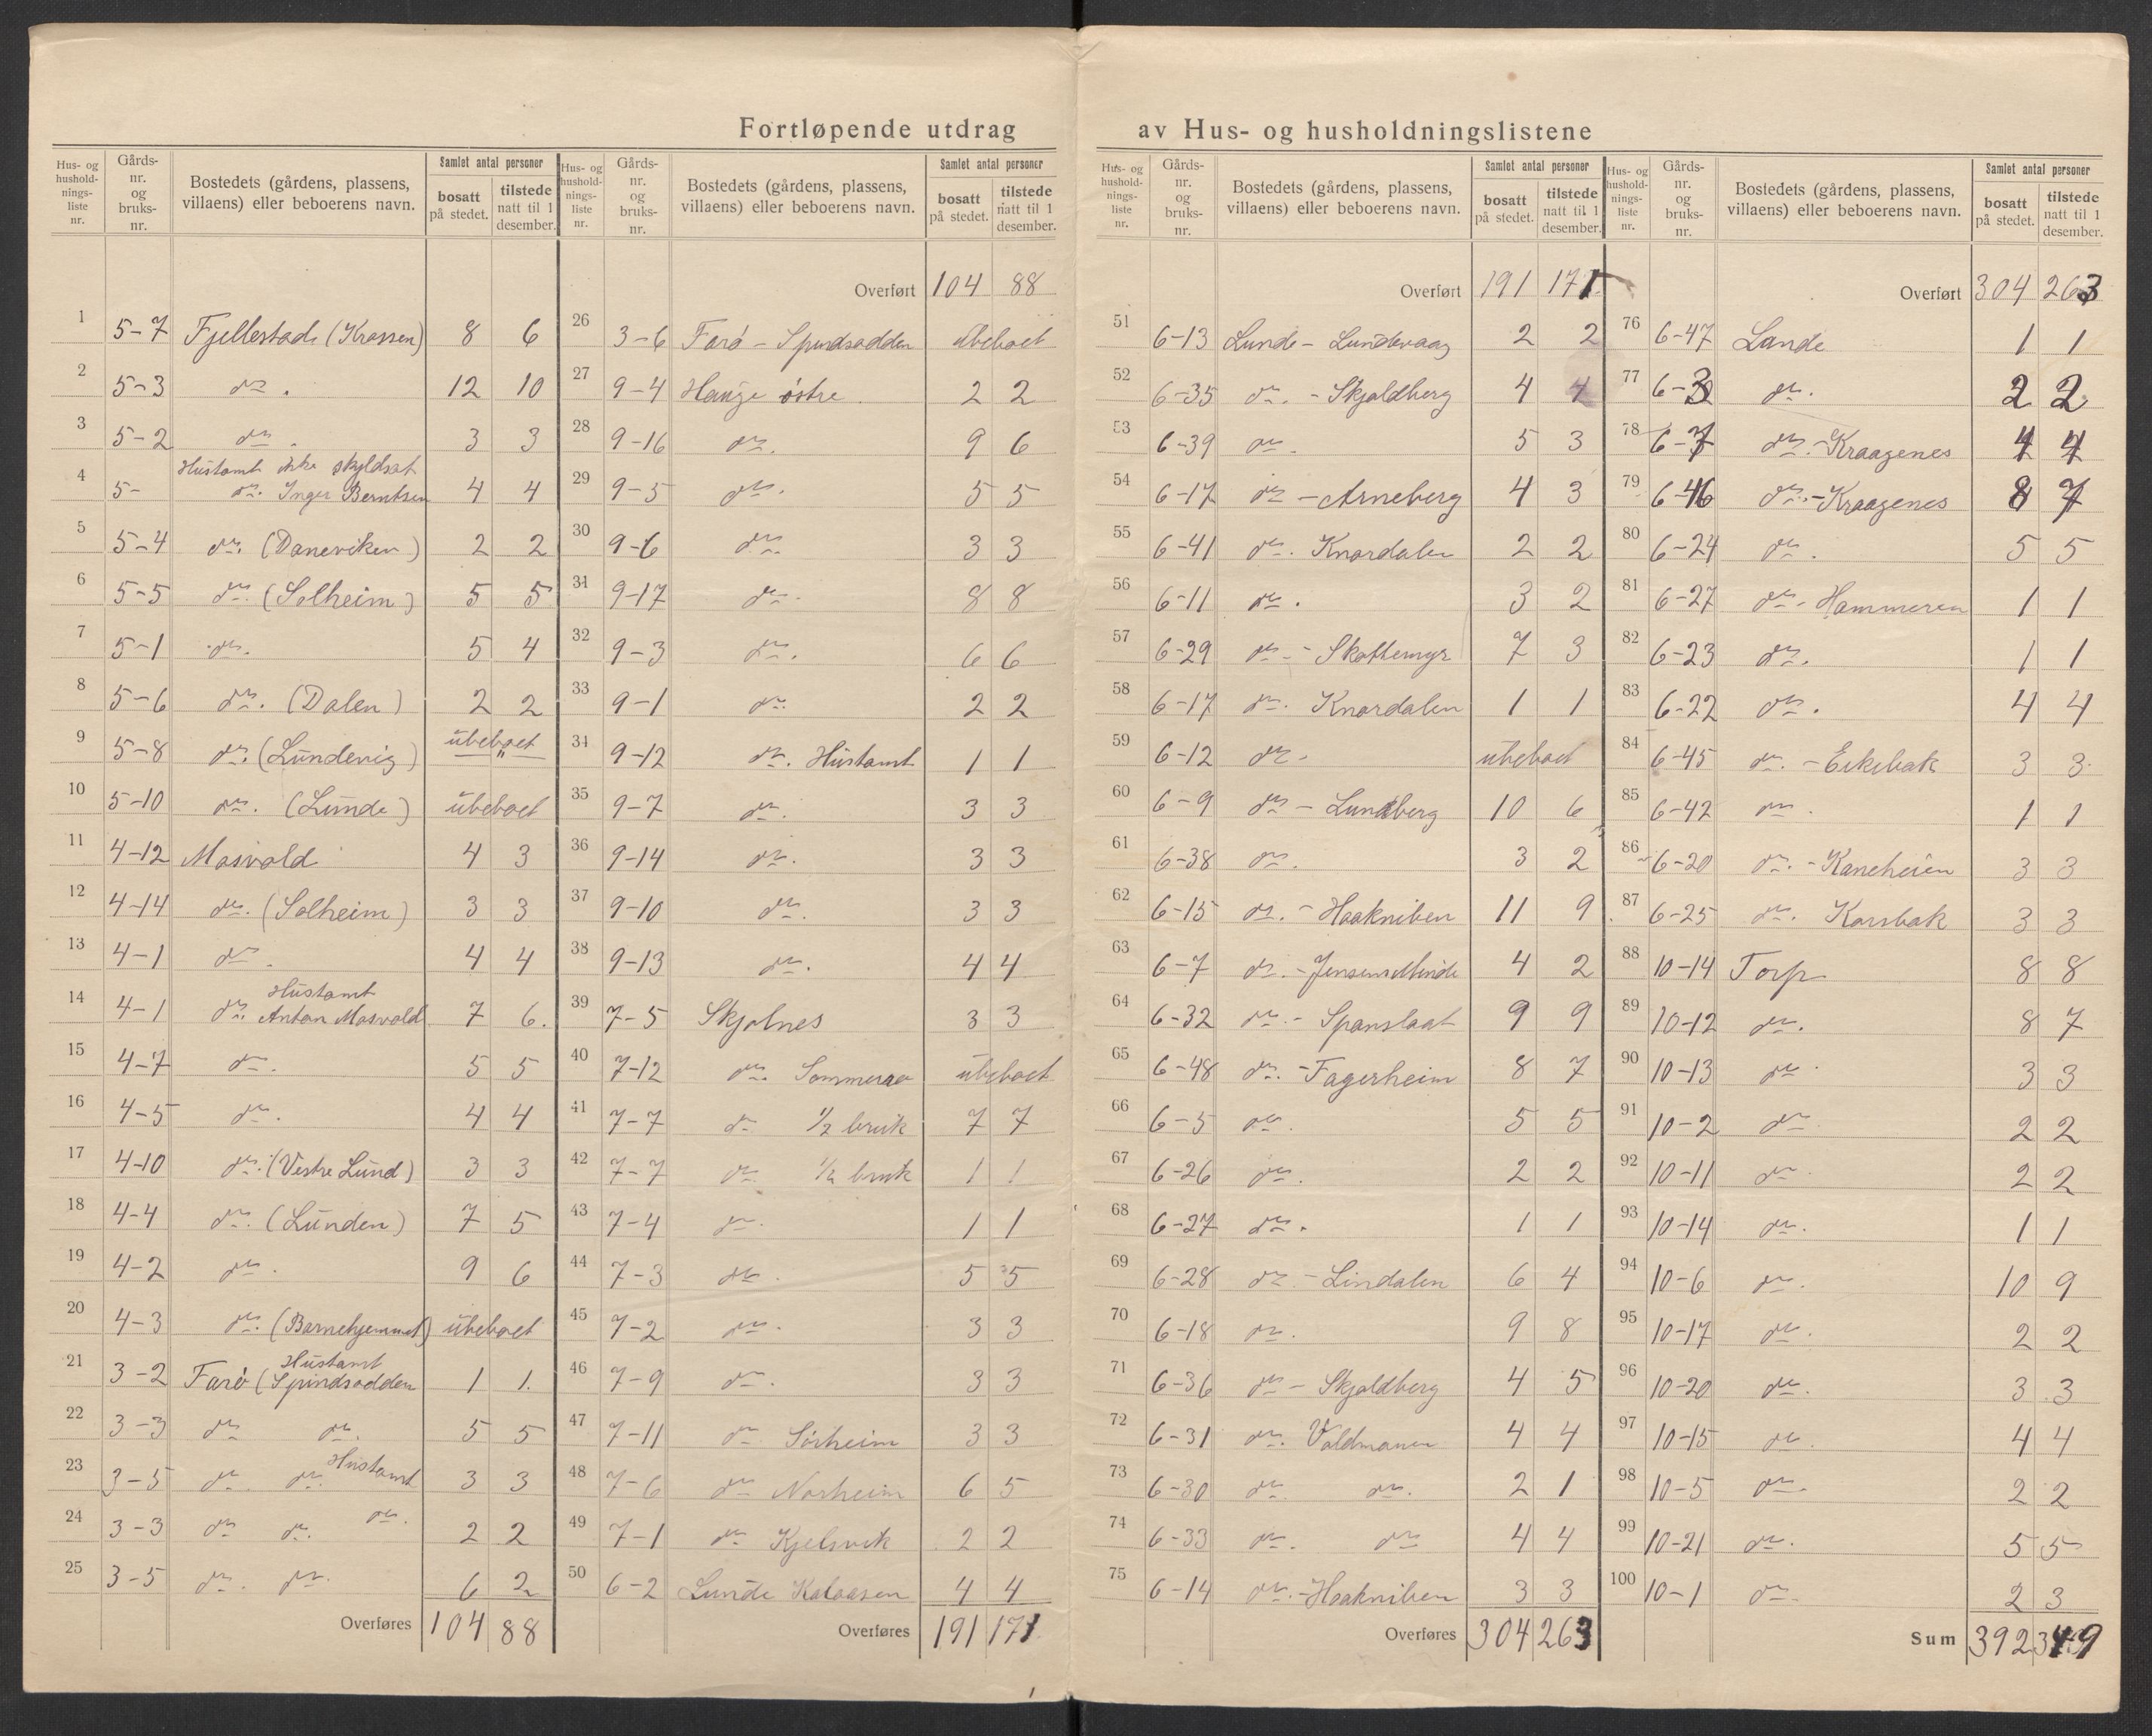 Fortløpende utdrag av Hus- og husholdningslistene
Hus- og husholdnings-liste nr. | Gårds-nr. og bruks-nr. | Bostedets (gårdens, plassens, villaens) eller beboerens navn. | Samlet antal personer | bosatt på stedet. | tilstede natt til 1 desember.
1 5-7 Fjellestad (Krossen) 8 6
2 5-3 do. 12 10
3 5-2 do. 3 3
4 5- Hustomt ikke skyldsat do. Inger Berntsen 4 4
5 5-4 do. (Daneviken) 2 2
6 5-5 do. (Solheim) 5 5
7 5-1 do. 5 4
8 5-6 do. (Dalen) 2 2
9 5-8 do. (Lundevig) ubeboet "
10 5-10 do. (Lunde) ubeboet
11 4-12 Mosvold 4 3
12 4-14 do. (Solheim) 3 3
13 4-1 do. 4 4
14 4-1 do. Hustomt Anton Mosvold 7 6.
15 4-7 do. 5 5
16 4-5 do. 4 4
17 4-10 do. (Vestre Lund) 3 3
18 4-4 do. (Lunden) 7 5
19 4-2 do. 9 6
20 4-3 do. (Barnehjemmet) ubeboet
21 3-2 Farø (Hustomt Spindsodden 1 1.
22 3-3 do do. 5 5
23 3-5 do do. Hustomt 3 3
24 3-3 do do. do. 2 2
25 3-5 do. do. 6 2
Overføres 104 88
Hus- og husholdnings-liste nr. | Gårds-nr. og bruks-nr. | Bostedets (gårdens, plassens, villaens) eller beboerens navn. | Samlet antal personer | bosatt på stedet. | tilstede natt til 1 desember.
Overført 104 88
26 3-6 Farø - Spindsodden ubeboet
27 9-4 Hauge østre 2 2
28 9-16 do. 9 6
29 9-5 do. 5 5
30 9-6 do. 3 3
31 9-17 do. 8 8
32 9-3 do. 6 6
33 9-1 do. 2 2
34 9-12 do. Hustomt 1 1
35 9-7 do. 3 3
36 9-14 do. 3 3
37 9-10 do. 3 3
38 9-13 do. 4 4
39 7-5 Skjolnes 3 3
40 7-12 do. ubeboet
41 7-7 do 1/2 bruk 7 7
42 7-7 do. 1/2 bruk 1 1
43 7-4 do. 1 1
44 7-3 do. 5 5
45 7-2 do. 3 3
46 7-9 do. 3 3
47 7-11 do. Sørheim 3 3
48 7-6 do Norheim 6 5
49 7-1 do Kjelsvik 2 2
50 6-2 Lunde Kalaasen 4 4
Overføres 191 171
Hus- og husholdnings-liste nr. | Gårds-nr. og bruks-nr. | Bostedets (gårdens, plassens, villaens) eller beboerens navn. | Samlet antal personer | bosatt på stedet. | tilstede natt til 1 desember.
Overført 191 171
51 6-13 Lunde - Lundevaag 2 2
52 6-35 do. - Skjoldberg 4 4
53 6-39 do. 5 3
54 6-17 do - Arneberg 4 3
55 6-41 do. Knardalen 2 2
56 6-11 do. 3 2
57 6-29 do. - Skottemyr 7 3
58 6-17 do. Knardalen 1 1
59 6-12 do. ubeboet
60 6-9 do - Lundberg 10 6
61 6-38 do. 3 2
62 6-15 do. - Haakniben 11 9
63 6-7 do. - Jensens Minde 4 2
64 6-32 do. - Spanslaat 9 9
65 6-48 do. - Fagerheim 8 7
66 6-5 do. 5 5
67 6-26 do. 2 2
68 6-27 do. 1 1
69 6-28 do - Lindalen 6 4
70 6-18 do. 9 8
71 6-36 do - Skjoldberg 4 5
72 6-31 do. Voldmonen 4 4
73 6-30 do do. 2 1
74 6-33 do. do 4 4
75 6-14 do. - Haakniben 3 3
Overføres 304 263
Hus- og husholdnings-liste nr. | Gårds-nr. og bruks-nr. | Bostedets (gårdens, plassens, villaens) eller beboerens navn. | Samlet antal personer | bosatt på stedet. | tilstede natt til 1 desember.
Overført 304 263
76 6-47 Lunde 1 1
77 6-3 do. 2 2
78 6-7 do. - Kraagenes 4 4
79 6-46 do. - Kraagenes 8 7
80 6-24 do. 5 5
81 6-27 do. - Hammeren 1 1
82 6-23 do. 1 1
83 6-22 do. 4 4
84 6-45 do. - Eikebak 3 3
85 6-42 do. 1 1
86 6-20 do. - Kaneheien 3 3
87 6-25 do. Korsbak 3 3
88 10-14 Torp 8 8
89 10-12 do. 8 7
90 10-13 do. 3 3
91 10-2 do 2 2
92 10-11 do. 2 2
93 10-14 do. 1 1
94 10-6 do. 10 9
95 10-17 do. 2 2
96 10-20 do. 3 3
97 10-15 do. 4 4
98 10-5 do. 2 2
99 10-21 do. 5 5
100 10-1 do. 2 3
Sum 392 349